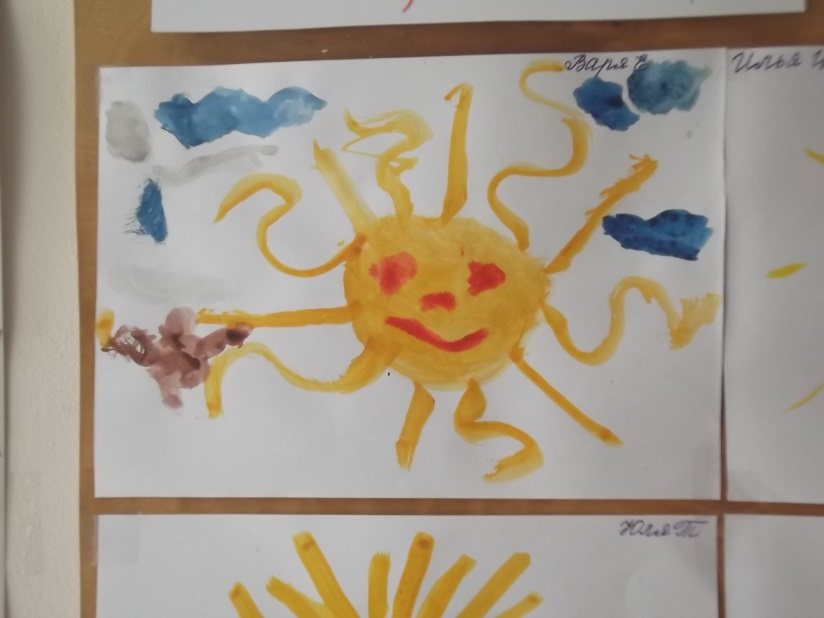 Варя Е
Илья
Юля Т